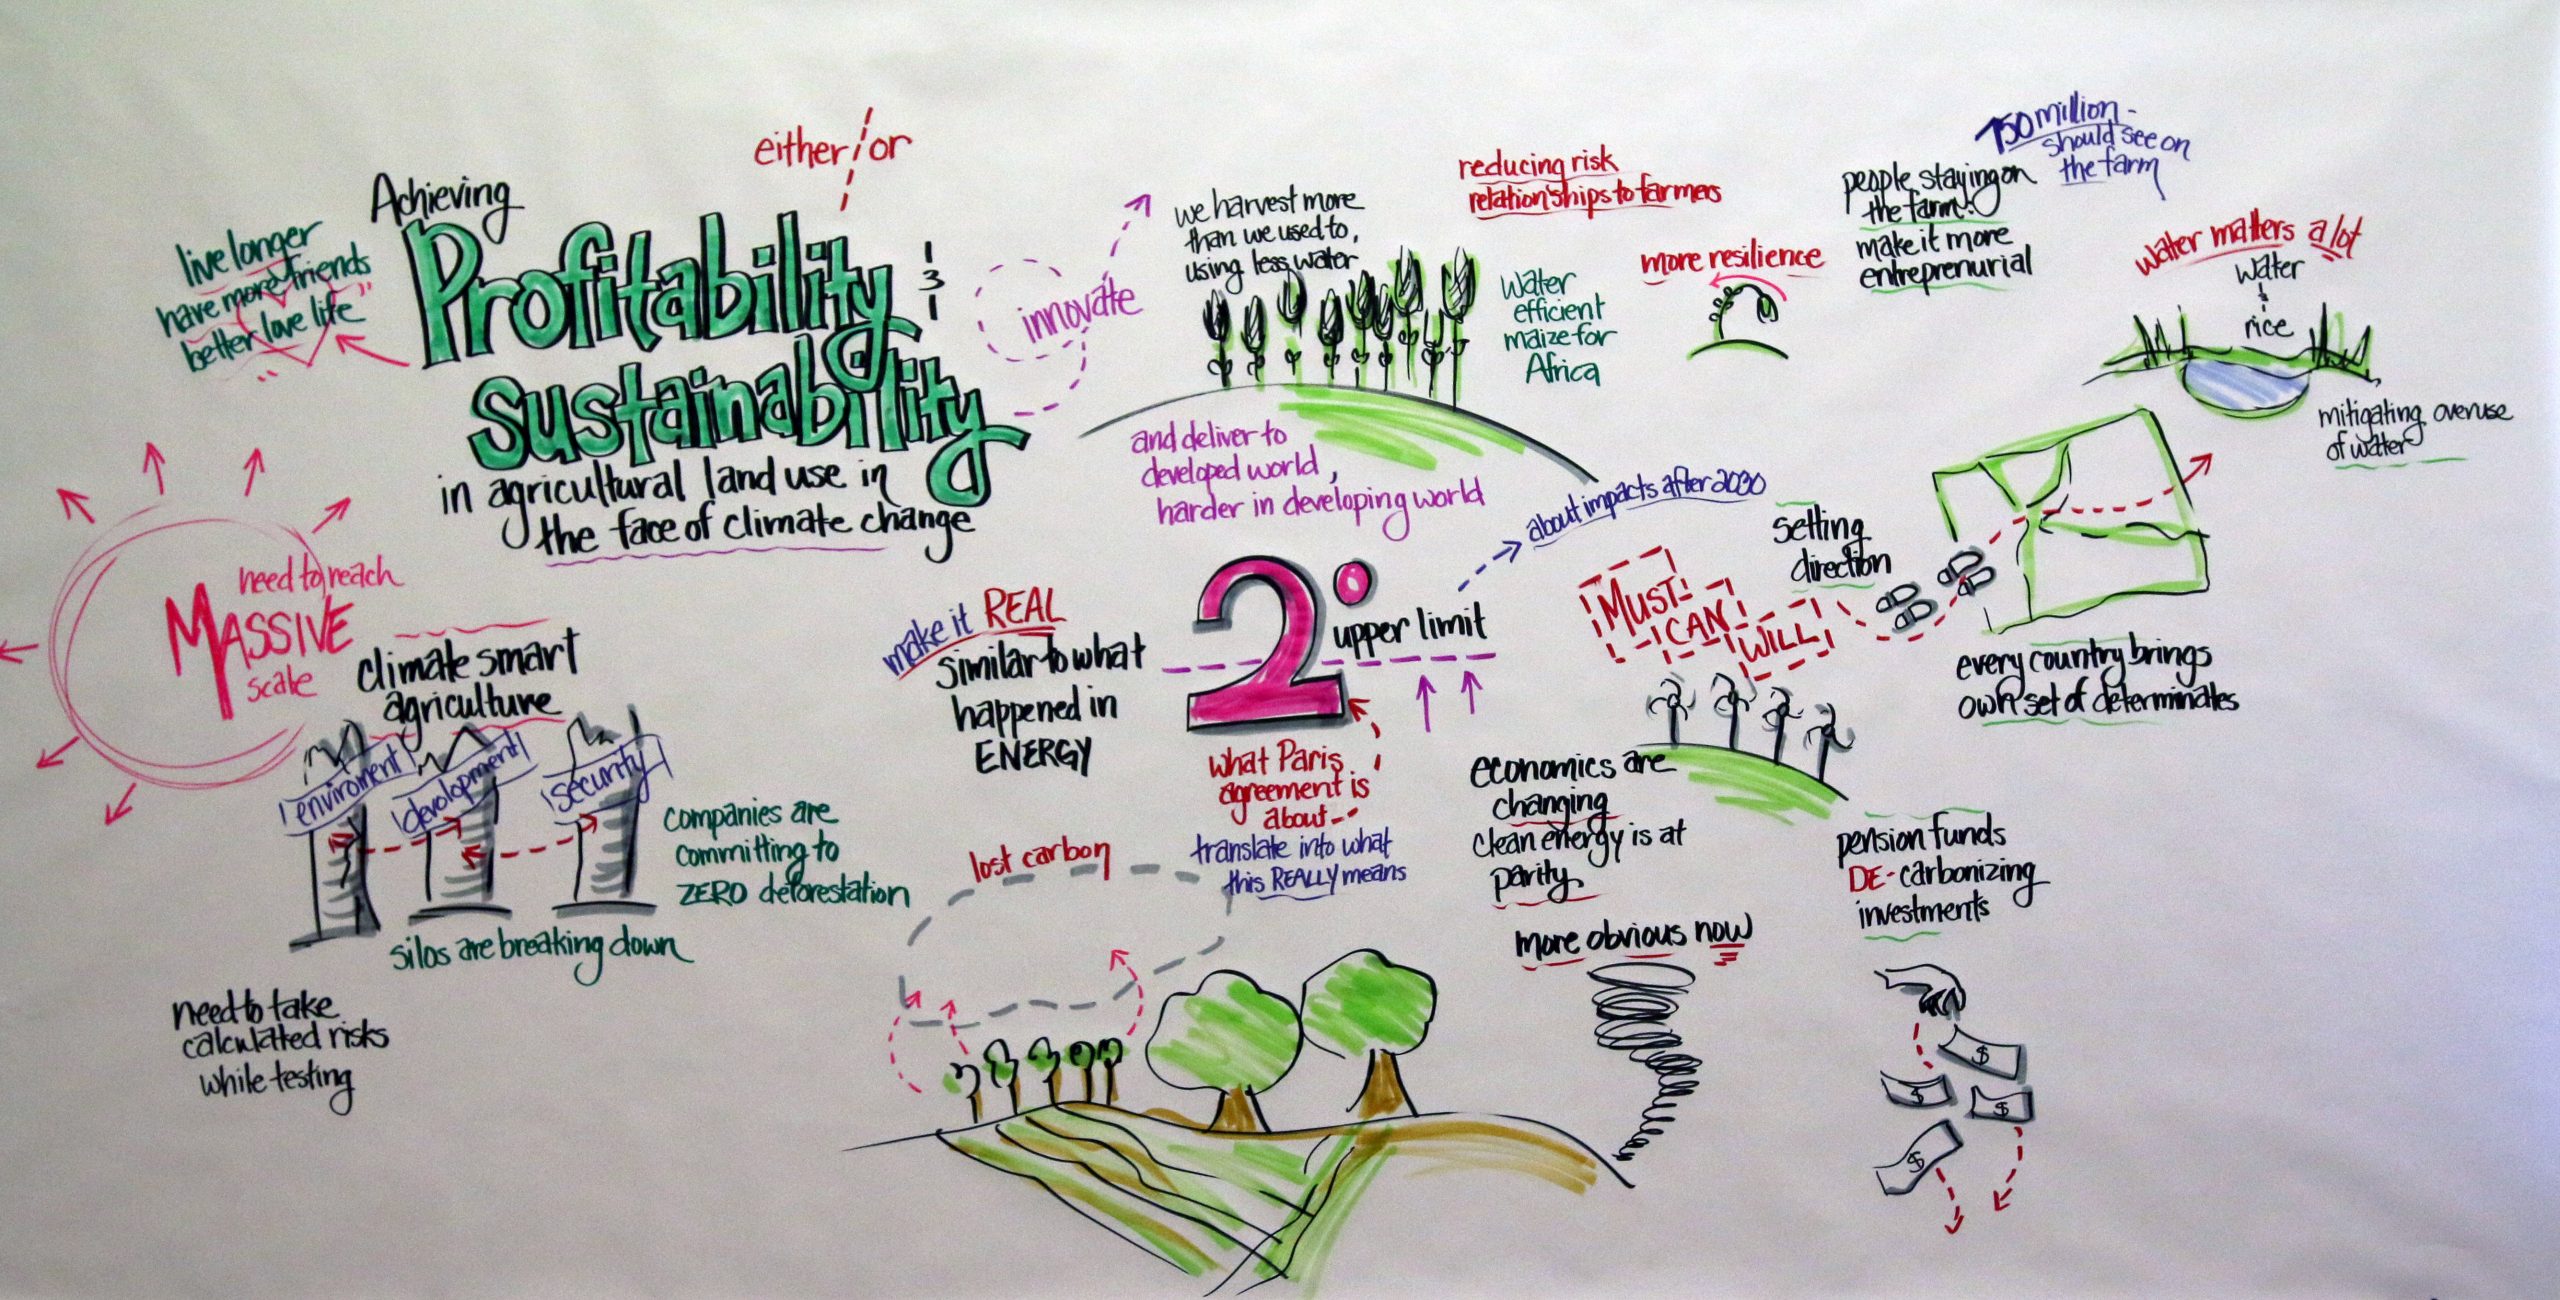 either/or
Achieving
Profitability
&
Sustainability
in agricultural land use in
the face of climate change
live longer
have more friends
better love life"
need to reach
MASSIVE
scale
climate smart
agriculture
enviroment
devolopment
security
silos are breaking down
companies are
committing to
ZERO deforestation
need to take
calculated risks
while testing
innovate
we harvest more
than we used to,
using less water
and deliver to
developed world,
harder in developing world
reducing risk
relationships to farmers
Water
efficient
maize for
Africa
more resilience
people staying on
the farm!
make it more
entreprenurial
750 million -
should see on
the farm
water matters a lot
water
&
rice
mitigating overuse
of water
make it REAL
similar to what
happened in
ENERGY
2°
upper limit
about impacts after 2030
what Paris
agreement is
about--
translate into what
this REALLY means
lost carbon
MUST
CAN
WILL
setting
direction
every country brings
own set of determinates
economics are
changing
clean energy is at
parity
more obvious now
pension funds
DE-carbonizing
investments
$
$
$
$